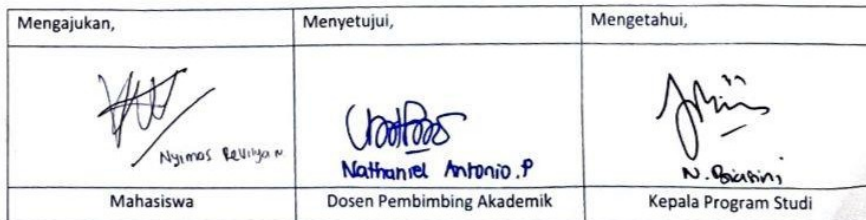 Mengajukan,
Menyetujui,
Mengetahui,
Nyimas Revilya N
Nathaniel Antonio.P
Mahasiswa
Dosen Pembimbing Akademik
Kepala Program Studi